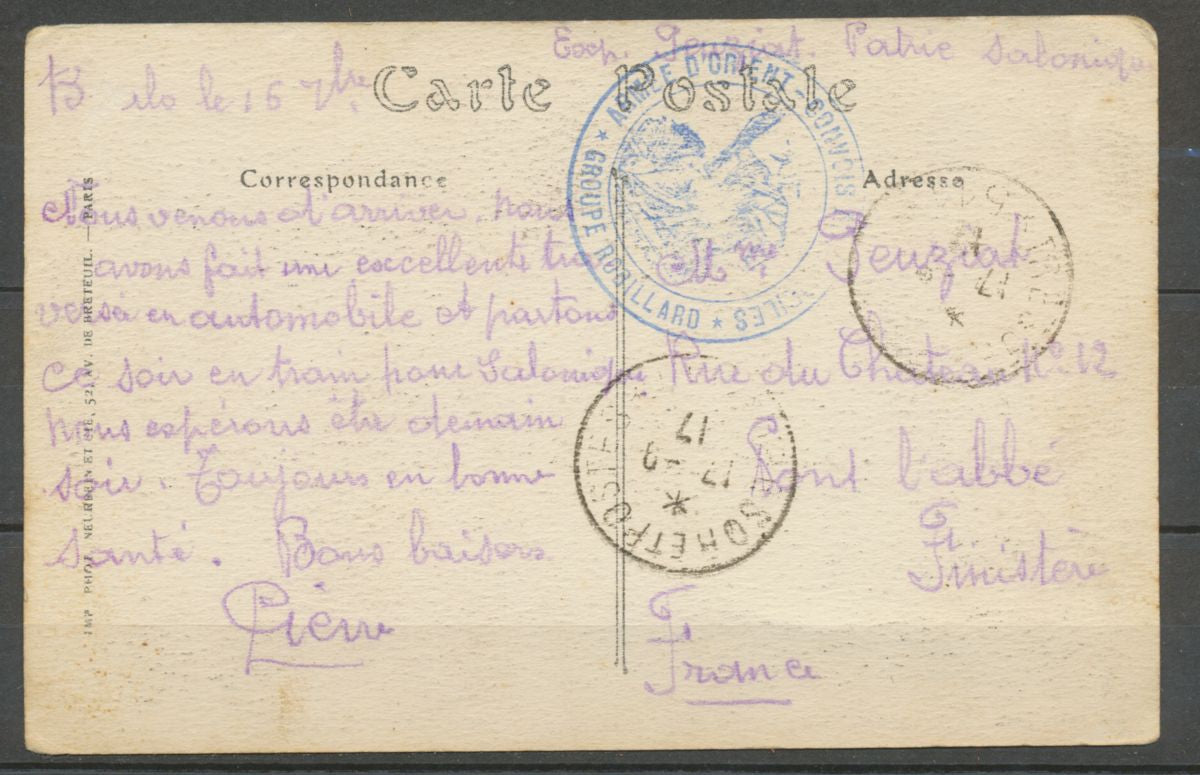 Exp. Peuziat. Patrie Salonique
le 16 7bre
Carte Postale
ARMÉE D'ORIENT - CONVOIS
★ GROUPE ROBILLARD ★
Correspondance
Adresse
Nous venons d'arriver. nous
avons fait une excellente tra
versée en automobile et partons
ce soir en train pour Salonique
nous espérons être demain
soir. Toujours en bonne
santé. Bons baisers
Pierre
Mme Peuziat
Rue du Château No 12
Pont l'abbé
Finistère
France
17 - 9
17
*
POSTES
17 - 9
17
*
IMP. PHOT. NEURDEIN ET CIE. 52, AV. DE BRETEUIL. — PARIS